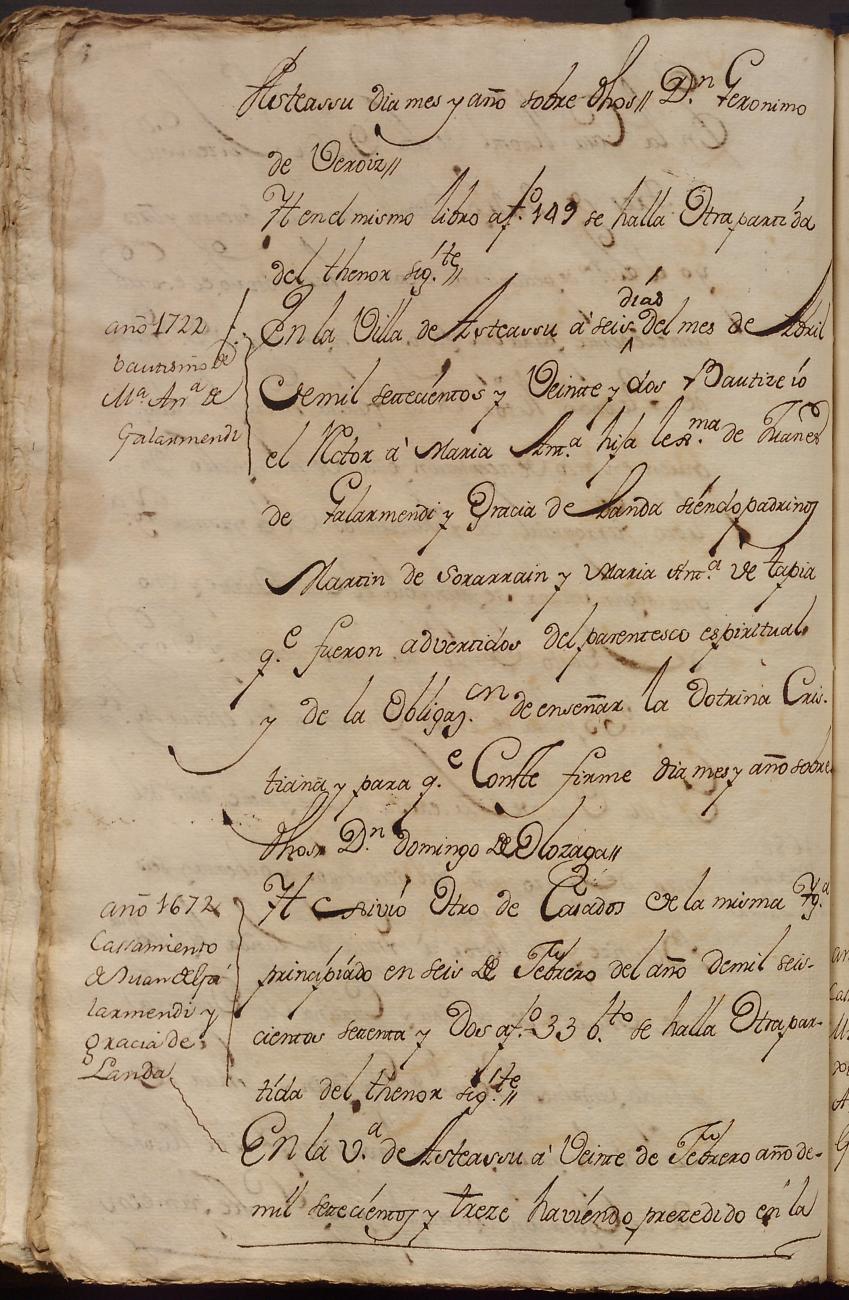 Asteassu dia mes y año sobre dhos// D.n Geronimo
de Veroiz//
Yt en el mismo libro a f.o 149 se halla Otra partida
del thenor sig.te//
año 1722
bautismo de
M.a An.a de
Galarmendi
En la Villa de Asteassu à seis dias del mes de Abril
de mil setecientos y Veinte y dos Bautize io
el Rector à Maria Ant.a hija lex.ma de Juanes
de Galarmendi y Gracia de Landa siendo padrinos
Martin de Sorarrain y Maria Ant.a de tapia
q.e fueron advertidos del parentesco espiritual
y de la Obligaz.on de enseñar la Dotrina Cris-
tiana y para q.e Conste firme dia mes y año sobre
dhos// D.n Domingo de Olozaga//
año 1672
Cassamiento
de Juan de Ga
larmendi y
gracia de
Landa
Yt exivió Otro de Casados de la misma Yg.a
principiado en seis de Febrero del año de mil seis-
cientos setenta y Dos a f.o 33 b.to se halla Otra par-
tida del thenor sig.te//
En la V.a de Asteassu à Veinte de Febrero año de-
mil setecientos y treze haviendo prezedido en la